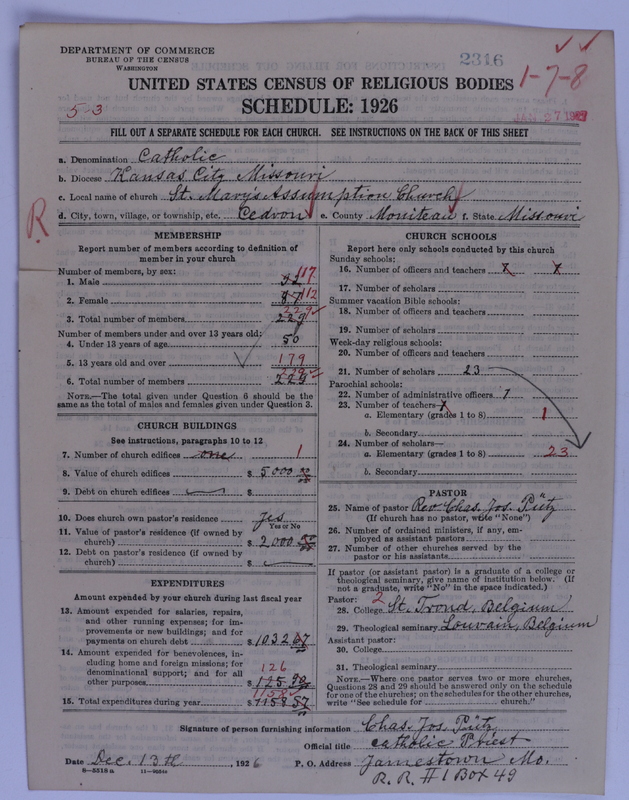 DEPARTMENT OF COMMERCE
BUREAU OF THE CENSUS
WASHINGTON
2316
1-7-8
UNITED STATES CENSUS OF RELIGIOUS BODIES
5-3
SCHEDULE: 1926
JAN 27 1927
FILL OUT A SEPARATE SCHEDULE FOR EACH CHURCH. SEE INSTRUCTIONS ON THE BACK OF THIS SHEET
a. Denomination Catholic
b. Diocese Kansas City Missouri
c. Local name of church St. Mary's Assumption Church
d. City, town, village, or township, etc. Cedron e. County Moniteau f. State Missouri
R
MEMBERSHIP
Report number of members according to definition of
member in your church
Number of members, by sex:
1. Male 117
2. Female 112
3. Total number of members 229
Number of members under and over 13 years old:
4. Under 13 years of age 50
5. 13 years old and over 179
6. Total number of members 229
NOTE.—The total given under Question 6 should be
same as the total of males and females given under Question 3.
CHURCH BUILDINGS
See instructions, paragraphs 10 to 12
7. Number of church edifices one 1
8. Value of church edifices $ 5000 00
9. Debt on church edifices $
10. Does church own pastor's residence yes
Yes or No
11. Value of pastor's residence (if owned by
church) $ 2000
12. Debt on pastor's residence (if owned by
church) $
EXPENDITURES
Amount expended by your church during last fiscal year
13. Amount expended for salaries, repairs,
and other running expenses; for im-
provements or new buildings; and for
payments on church debt $ 1032
14. Amount expended for benevolences, in-
cluding home and foreign missions; for
denominational support; and for all
other purposes 126 $ 125 90
15. Total expenditures during year $ 1158 57
CHURCH SCHOOLS
Report here only schools conducted by this church
Sunday schools:
16. Number of officers and teachers
17. Number of scholars
Summer vacation Bible schools:
18. Number of officers and teachers
19. Number of scholars
Week-day religious schools:
20. Number of officers and teachers
21. Number of scholars 23
Parochial schools:
22. Number of administrative officers 1
23. Number of teachers—
a. Elementary (grades 1 to 8) 1
b. Secondary
24. Number of scholars—
a. Elementary (grades 1 to 8) 23
b. Secondary
PASTOR
25. Name of pastor Rev. Chas. Jos. Pütz
(If church has no pastor, write "None")
26. Number of ordained ministers, if any, em-
ployed as assistant pastors
27. Number of other churches served by the
pastor or his assistants
If pastor (or assistant pastor) is a graduate of a college or
theological seminary, give name of institution below. (If
not a graduate, write "No" in the space indicated.)
Pastor: 2
28. College St. Trond, Belgium
29. Theological seminary Louvain, Belgium
Assistant pastor:
30. College
31. Theological seminary
NOTE.—Where one pastor serves two or more churches,
Questions 28 and 29 should be answered only on the schedule
for one of the churches; on the schedules for the other churches,
write "See schedule for church."
Signature of person furnishing information Chas. Jos. Pütz
Official title Catholic Priest
Date Dec. 13th, 1926 P. O. Address Jamestown Mo.
R.R. #1 Box 49